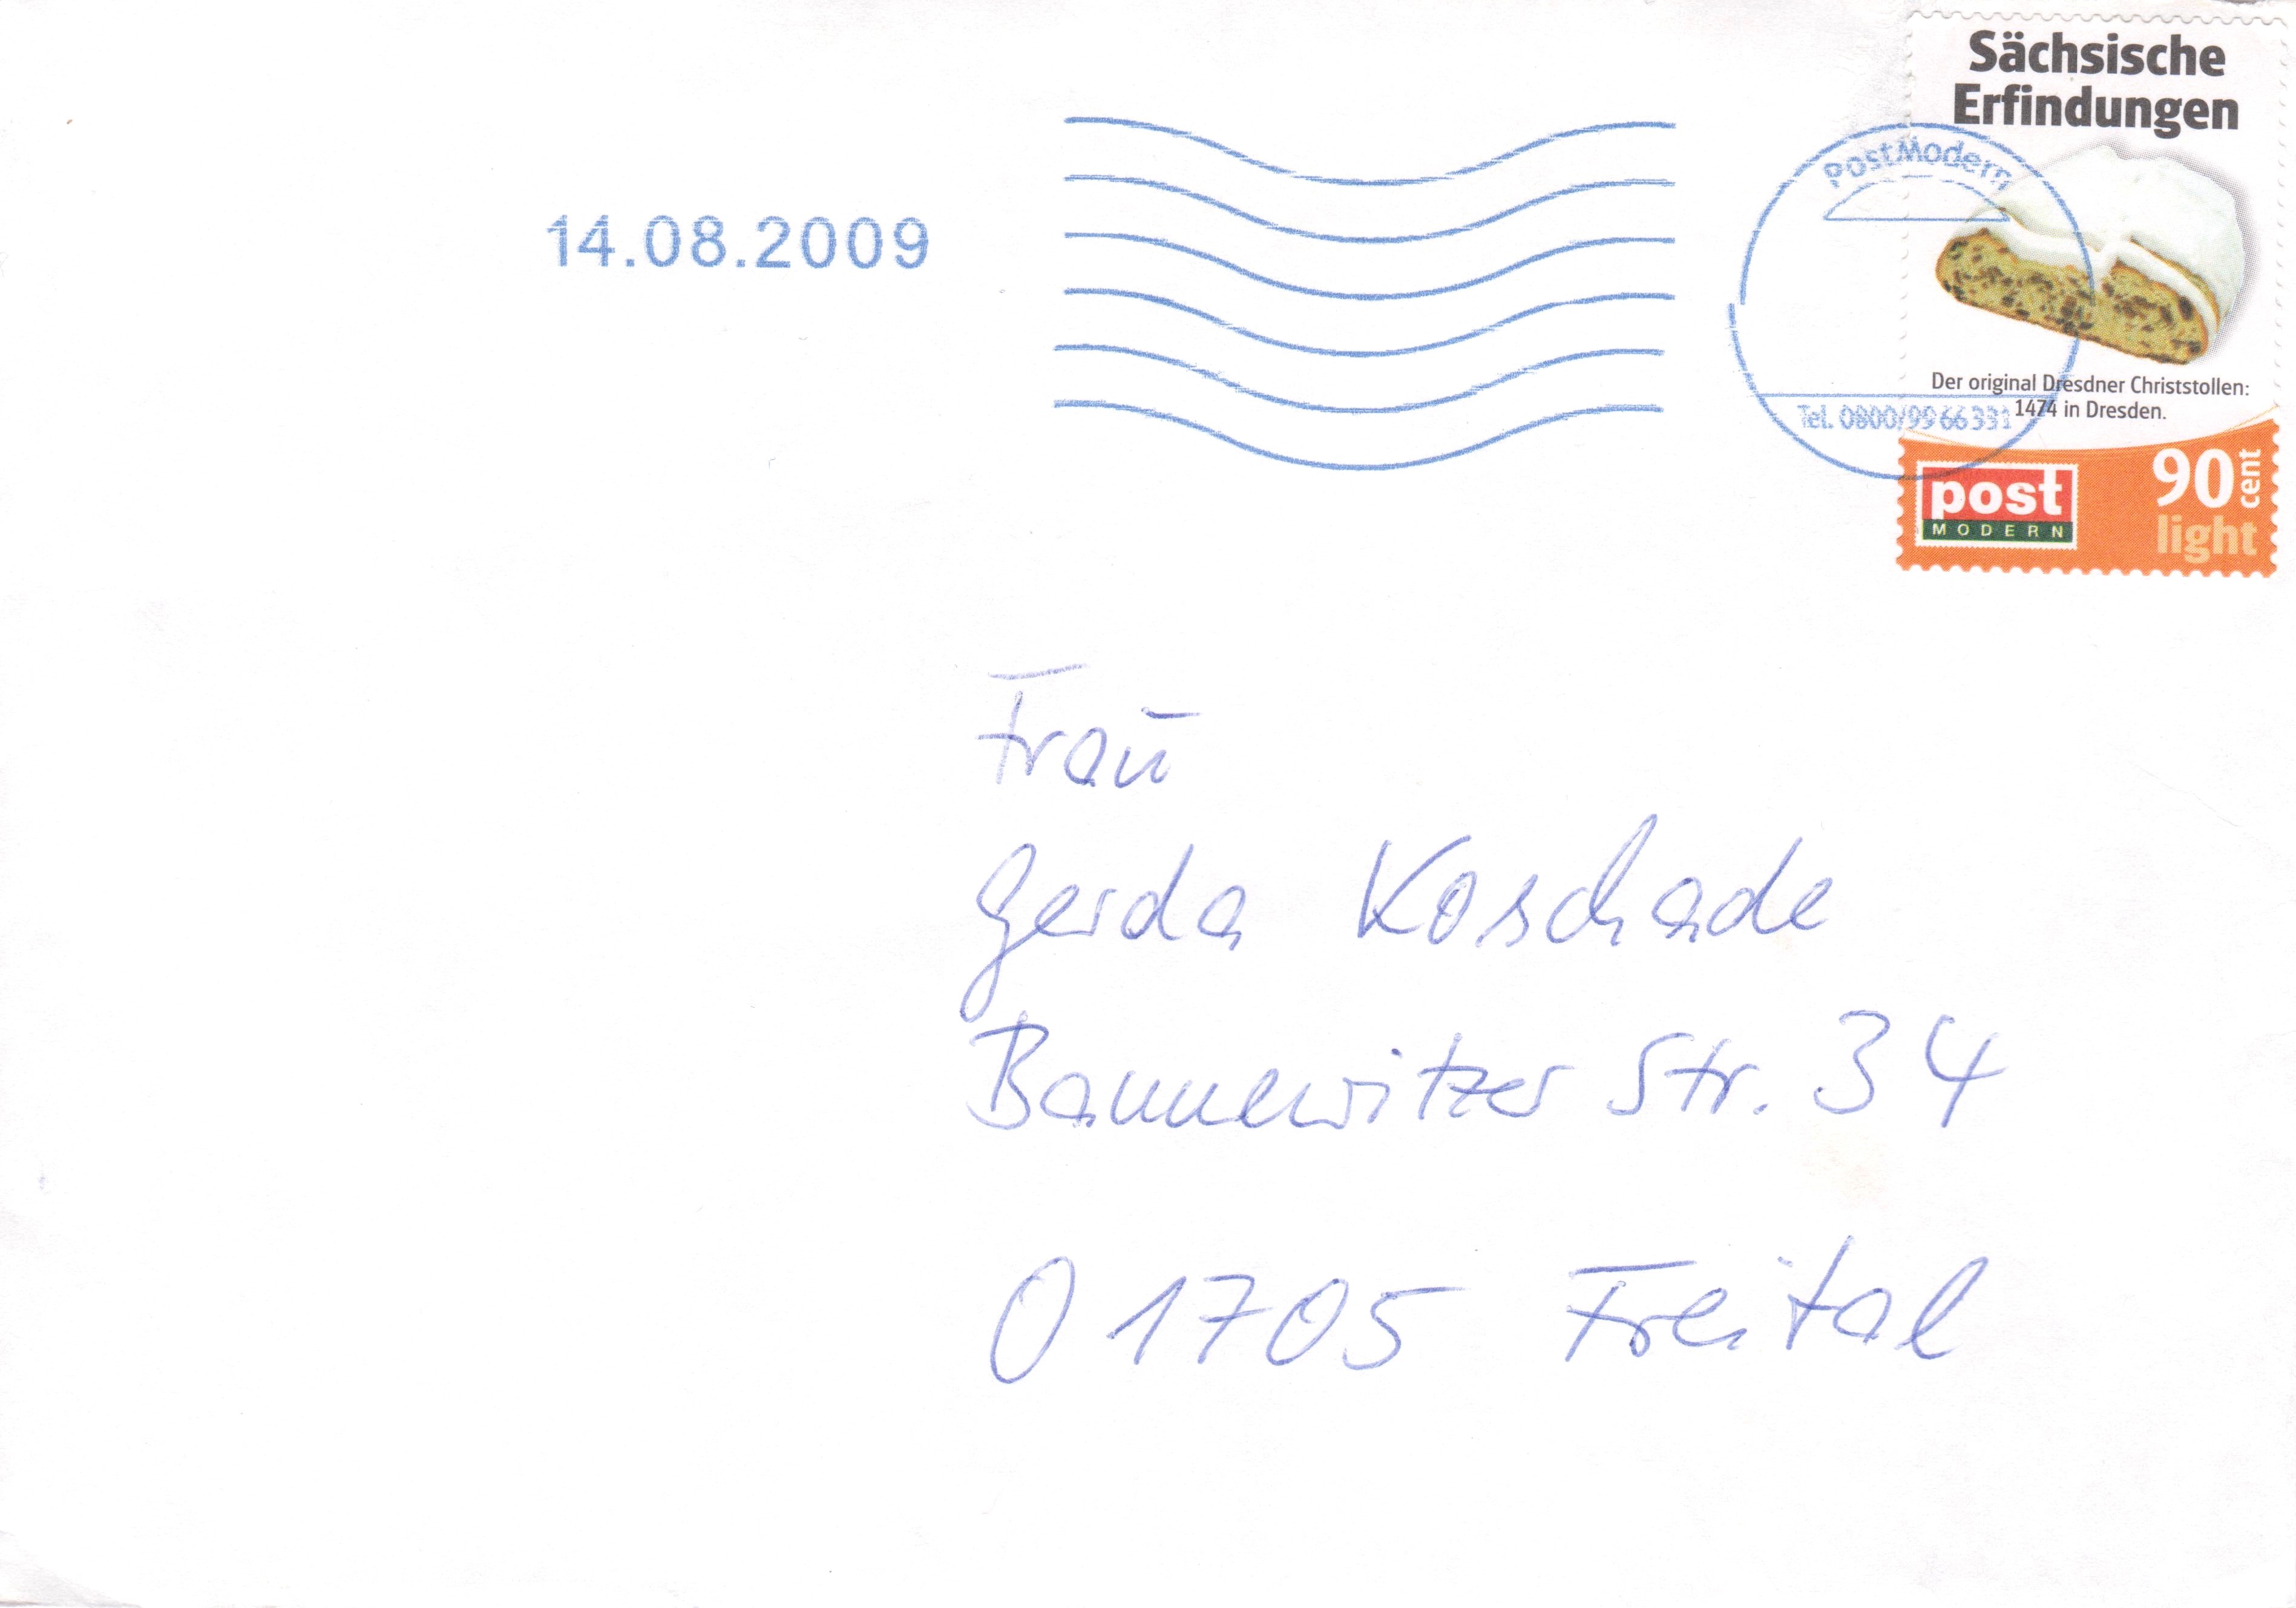 Sächsische
Erfindungen
PostModern
14.08.2009
Der original Dresdner Christstollen:
1474 in Dresden.
Tel. 0800/99 66 331
post
MODERN
90 cent
light
Frau
Gerda Koschade
Bannewitzer Str. 34
01705 Freital